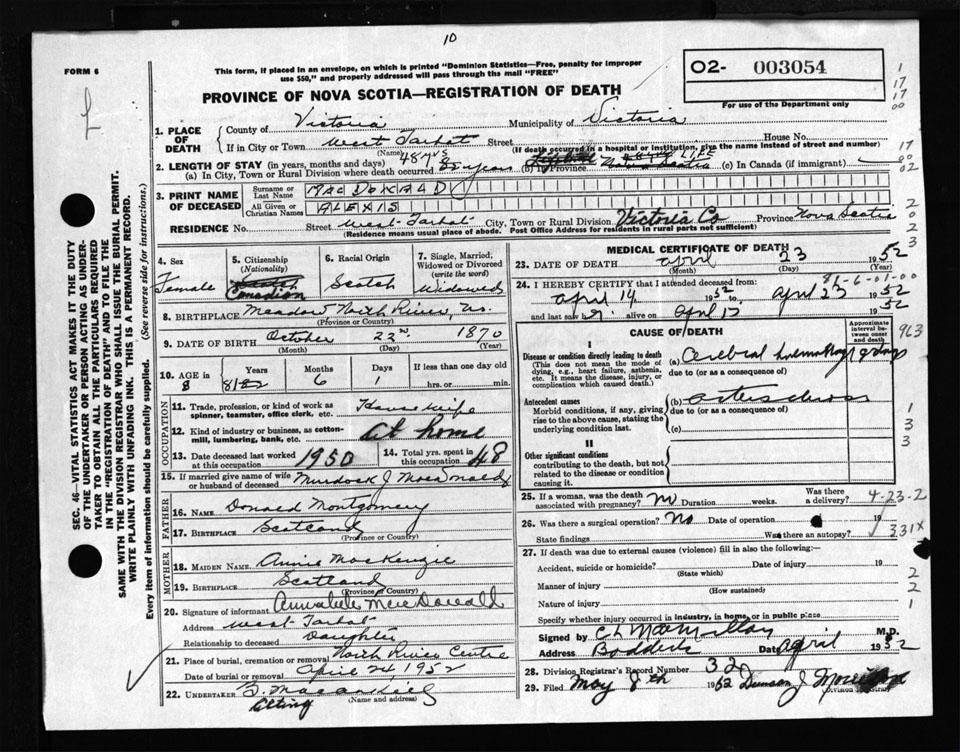 10
FORM 6
This form, if placed in an envelope, on which is printed "Dominion Statistics—Free, penalty for improper
use 550," and properly addressed will pass through the mail "FREE"
O2- 003054
For use of the Department only
PROVINCE OF NOVA SCOTIA—REGISTRATION OF DEATH
SEC. 46—VITAL STATISTICS ACT MAKES IT THE DUTY
OF THE UNDERTAKER OR PERSON ACTING AS UNDER-
TAKER TO OBTAIN ALL THE PARTICULARS REQUIRED
IN THE "REGISTRATION OF DEATH" AND TO FILE THE
SAME WITH THE DIVISION REGISTRAR WHO SHALL ISSUE THE BURIAL PERMIT.
WRITE PLAINLY WITH UNFADING INK. THIS IS A PERMANENT RECORD.
Every item of information should be carefully supplied. (See reverse side for instructions.)
1. PLACE OF DEATH
County of Victoria Municipality of Victoria
If in City or Town West Tarbat Street House No.
(Name) (If death occurred in a hospital or institution, give the name instead of street and number)
2. LENGTH OF STAY (in years, months and days)
(a) In City, Town or Rural Division where death occurred 48 yrs (b) In Province LIFE (c) In Canada (if immigrant)
3. PRINT NAME OF DECEASED
Surname or Last Name MACDONALD
All Given or Christian Names ALEXIS
RESIDENCE No. Street West Tarbat City, Town or Rural Division Victoria Co Province Nova Scotia
(Residence means usual place of abode. Post Office Address for residents in rural parts not sufficient)
4. Sex Female
5. Citizenship (Nationality) Canadian
6. Racial Origin Scotch
7. Single, Married, Widowed or Divorced (write the word) Widowed
8. BIRTHPLACE Meadow North River, N.S.
(Province or Country)
9. DATE OF BIRTH October 22nd 1870
(Month) (Day) (Year)
10. AGE IN Years Months Days If less than one day old
81 6 1 hrs. or min.
OCCUPATION
11. Trade, profession, or kind of work as spinner, teamster, office clerk, etc. House wife
12. Kind of industry or business, as cotton-mill, lumbering, bank, etc. At home
13. Date deceased last worked at this occupation 1950
14. Total yrs. spent in this occupation 48
15. If married give name of wife or husband of deceased Murdock J MacDonald
FATHER
16. NAME Donald Montgomery
17. BIRTHPLACE Scotland
(Province or Country)
MOTHER
18. MAIDEN NAME Annie MacKenzie
19. BIRTHPLACE Scotland
(Province or Country)
20. Signature of informant Annabelle MacDonald
Address West Tarbat
Relationship to deceased Daughter
21. Place of burial, cremation or removal North River Centre
Date of burial or removal April 24, 1952
22. UNDERTAKER
Acting (Name and address)
MEDICAL CERTIFICATE OF DEATH
23. DATE OF DEATH April 23 1952
(Month) (Day) (Year)
81-6-01-00
24. I HEREBY CERTIFY that I attended deceased from:
April 14 1952 to April 23 1952
and last saw h alive on April 1952
CAUSE OF DEATH
Approximate interval between onset and death
I
Disease or condition directly leading to death
(This does not mean the mode of dying, e.g., heart failure, asthenia, etc. It means the disease, injury, or complication which caused death.)
(a) Cerebral hemorrhage 9 days
due to (or as a consequence of)
Antecedent causes
Morbid conditions, if any, giving rise to the above cause, stating the underlying condition last.
(b)
due to (or as a consequence of)
(c)
II
Other significant conditions
contributing to the death, but not related to the disease or condition causing it.
25. If a woman, was the death associated with pregnancy? No Duration weeks. Was there a delivery?
4-23-2
26. Was there a surgical operation? No Date of operation 19
State findings Was there an autopsy?
331X
27. If death was due to external causes (violence) fill in also the following:—
Accident, suicide or homicide? Date of injury 19
(State which)
Manner of injury
(How sustained)
Nature of injury
Specify whether injury occurred in industry, in home, or in public place
Signed by C L MacMillan M.D.
Address Baddeck Date April 1952
28. Division Registrar's Record Number 32
29. Filed May 8th 1952
Division Registrar